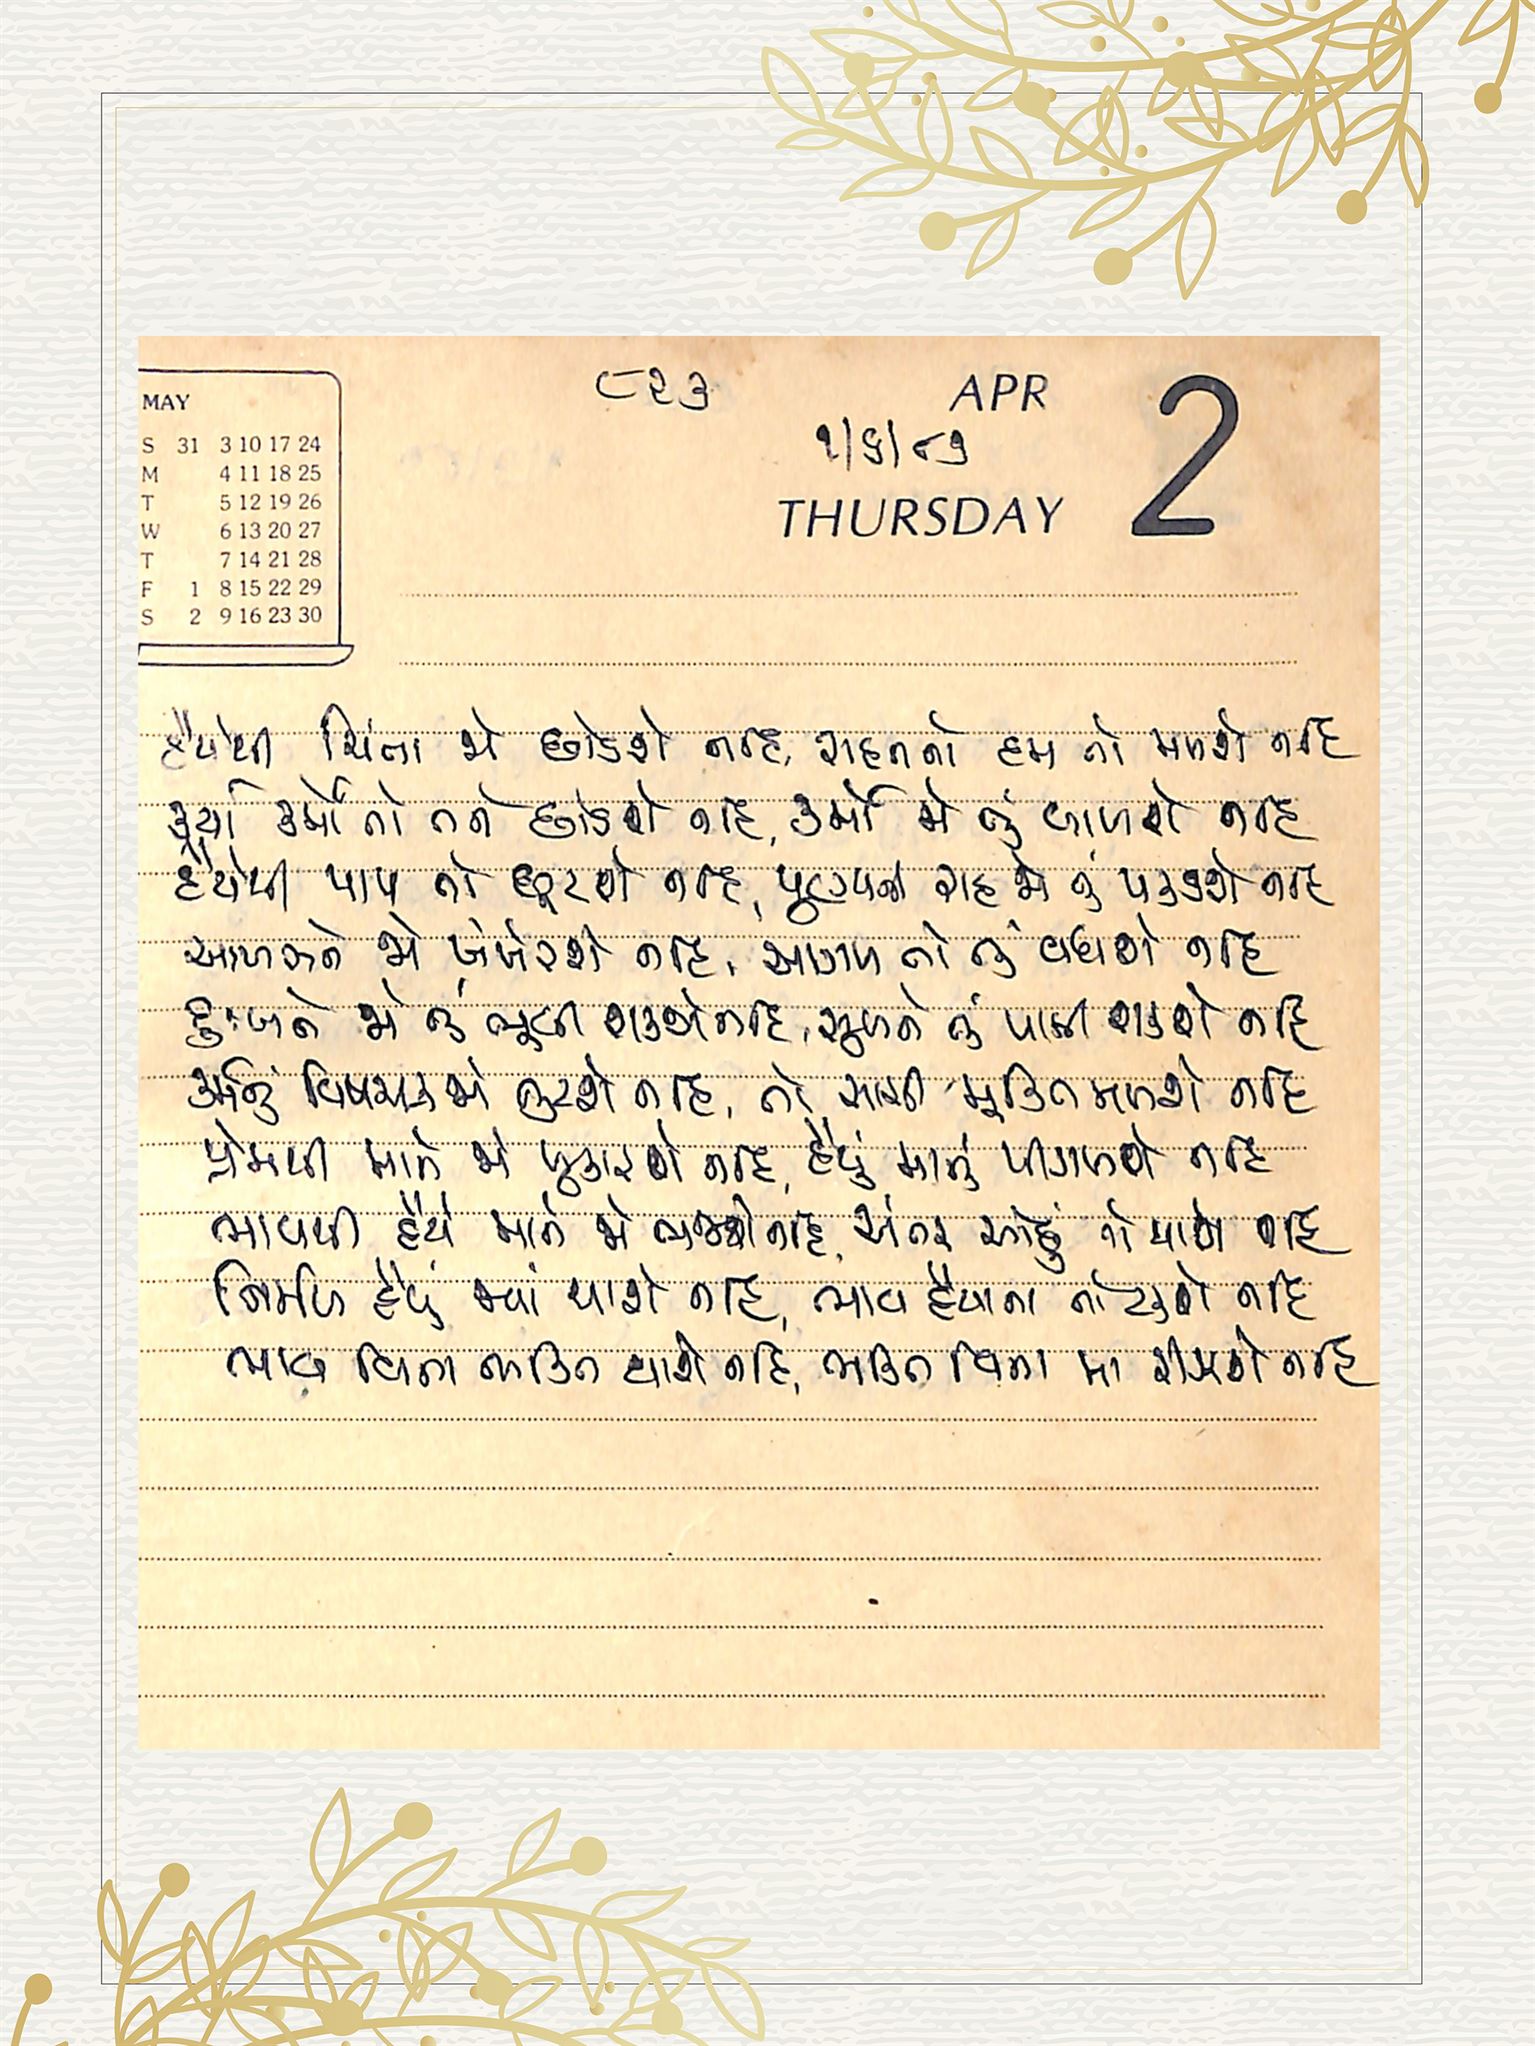 ૮૨૩
APR
2
૧/૬/૮૭
THURSDAY
MAY
S 31 3 10 17 24
M 4 11 18 25
T 5 12 19 26
W 6 13 20 27
T 7 14 21 28
F 1 8 15 22 29
S 2 9 16 23 30
હૈયેથી ચિંતા જો છોડશે નહિ, રાહતનો દમ તો મળશે નહિ
કર્યા કર્મો તો તને છોડશે નહિ, કર્મો જો તું બાળશે નહિ
હૈયેથી પાપ તો છૂટશે નહિ, પુણ્યની રાહ જો તું પકડશે નહિ
આળસને જો ખંખેરશે નહિ, આગળ તો તું વધશે નહિ
દુઃખને જો તું ભૂલી શકશે નહિ, સુખને તું પામી શકશે નહિ
કર્મનું વિષચક્ર જો તુટશે નહિ, તો સાચી મુક્તિ મળશે નહિ
પ્રેમથી માને જો પુકારશે નહિ, હૈયું માનું પીગળશે નહિ
ભાવથી હૈયે માને જો ભજશે નહિ, અંતર ઓછું તો થાશે નહિ
નિર્મળ હૈયું જ્યાં થાશે નહિ, ભાવ હૈયાના તો સુણશે નહિ
ભાવ વિના ભક્તિ થાશે નહિ, ભક્તિ વિના મા રીઝશે નહિ